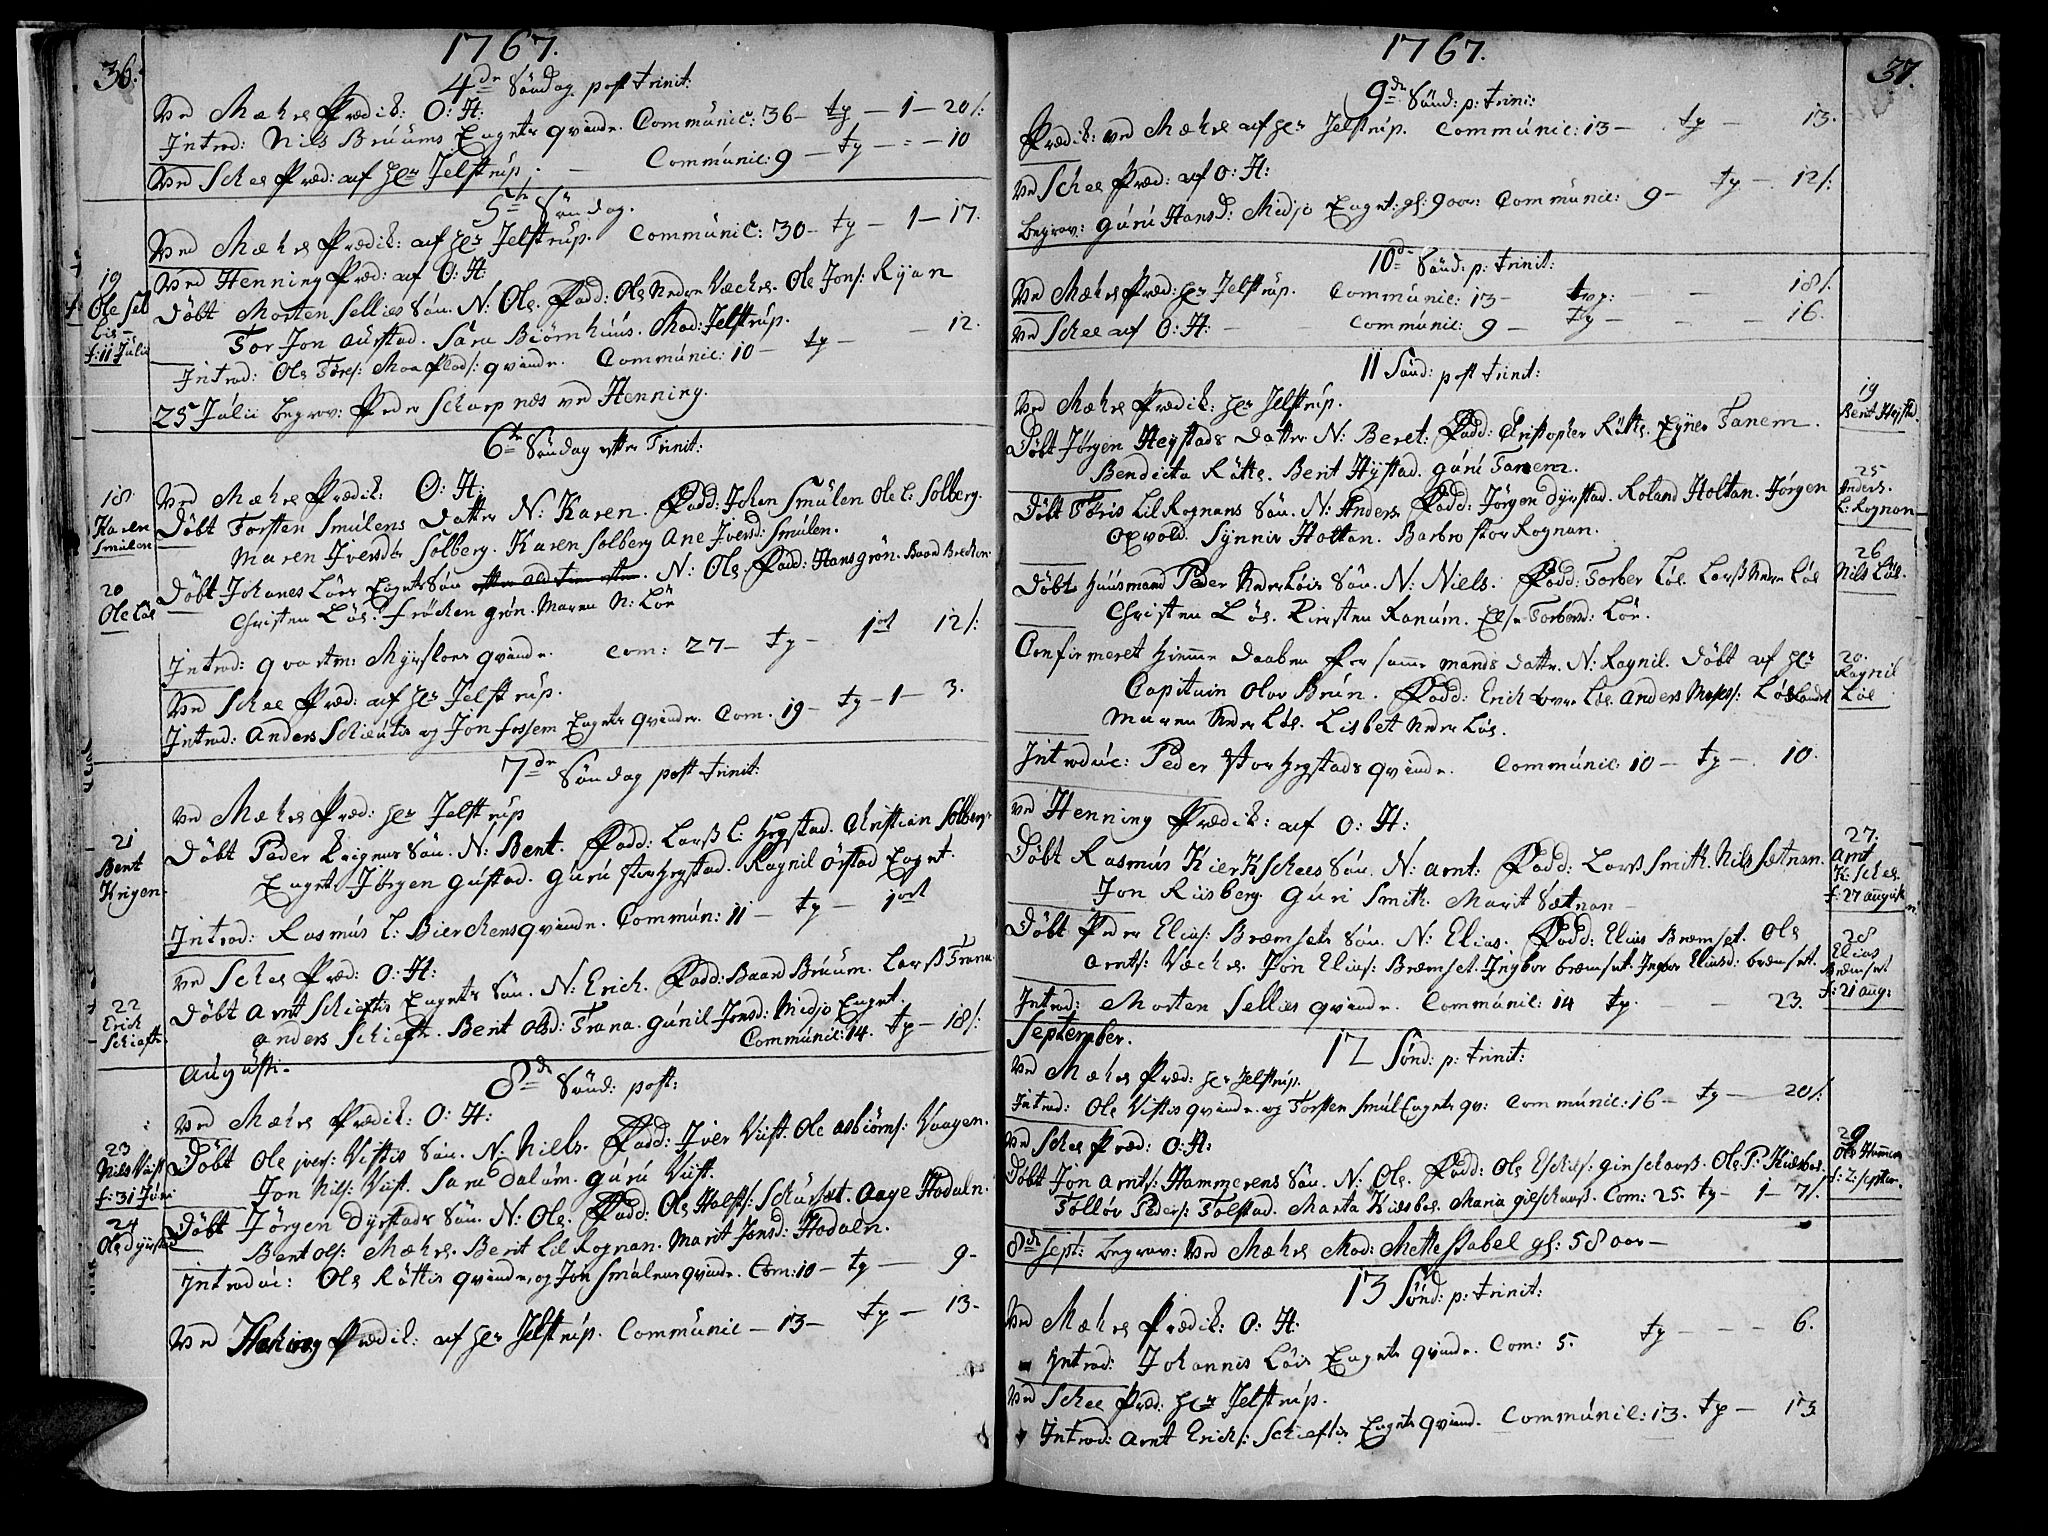 36.
1767.
4de Söndag post trinit:
Ved Mæhre Prædik: O: H:
Introd: Nils Brúums Eugets qvinde. Commúnic: 36 — ty — 1 — 20 s:
Ved Schee Præd: af Hr Jelstrup. — Commúnic: 9 — ty — 10
5te Söndag.
Ved Mæhre Prædik: af Hr Jelstrúp. Commúnic: 30 — ty — 1 — 17.
Ved Henning Præd: af O: H:
19
Ole Sel
lie
f: 11 Julii
Döbt Morten Sellies Sön. N: Ole. Fadd: Ole Nedre Væchre. Ole Jons: Ryan
Tor Jon Aúrstad. Sara Biörnhúús. Mad: Jelstrúp.
Introd: Ole Tores: Moe Plads: qvinde. Commúnic: 10 — ty — — 12.
25 Júlii begrav: Peder Scharpnæs ved Henning.
6te Söndag efter Trinit:
Ved Mæhre Prædik: O: H:
18
Karen
Smúlen
Döbt Torsten Smúlens Datter N: Karen. Fadd: Johan Smúlen Ole L: Solberg.
Maren Iversdr Solberg. Karen Solberg Ane Iversd: Smúlen.
20
Ole Löe
Döbt Johanes Löes Eugets Sön. N: Ole Fadd: Hans grön. Baard Brecken
Christen Löe. fröcken grön. Maren N: Löe
Introd: Myrsloer qvinde. Com: 27 — ty — 1 ort 12 s:
Ved Schee Præd: af Hr Jelstrúp.
Introd: Anders Schieútis og Jon fossem Eugets qvinder. Com. 19 — ty — 1 — 3.
7de Söndag post trinit:
Ved Mæhre Præd: Hr Jelstrúp
21
Bent
Krigen
Döbt Peder Krigens Sön. N: Bent. Fadd: Larss L: Hegstad. Christian Solberg
Euget Jörgen gústad. Gúrú StorHegstad. Ragnil Örstad Euget.
Introd: Rasmús L: Bierckens qvinde. Commún: 11 — ty — 1 ort
Ved Schee Præd: O: H:
22
Erich
Schiefte
Döbt Arnt Schieftis Eugets Sön. N: Erich. Fadd: Baard Brúum. Larss Trana
Anders Schiefte. Berit Olsd: Trana. Gúnil Jonsd: Midjo Euget.
Commúnic: 14. ty — 18 s:
Augústi.
8de Sönd: post:
Ved Mæhre Prædik: O: H:
23
Nils Viist
f: 31 Júli
Döbt Ole Ivers: Vistis Sön. N: Niels. Fadd: Iver Viist. Ole Asbiörns: Vaagen.
Jon Nils: Viist. Sara Dalúm. Gúrú Viist.
24
Ole Dyrstad
Döbt Jörgen Dyrstads Sön. N: Ole. Fadd: Ole Halfs: Schúsæt. Aage Hodaln.
Bent Ols: Mæhre. Berit Lil Rognan. Marit Jonsd: Hodaln.
Introdúc: Ole Röttis qvinde, og Jon Smúlens qvinde. Com: 10 — ty — 9 —
Ved Henning Prædik: af Hr Jelstrúp. Commúnic — 13 — ty — 13 —
37.
1767.
9de Sönd: p: trini:
Prædik: ved Mæhre af Hr Jelstrúp. Commúnic: 13 — ty — 13.
Ved Schee Præd: af O: H:
Begrav: Gúrú Hansd: Midjo Euget: gl: 9 aar: Commúnic: 9 — ty — 12 s:
10de Sönd: p: trinit:
Ved Mæhre Præd: Hr Jelstrúp. Commúnic: 13 — ty: — — 18 s:
Ved Schee af O: H: — Commúnic: 9 — ty — — — 16.
11 Sönd: post trinit:
Ved Mæhre Prædik: Hr Jelstrúp.
19
Berit Hegstd.
Döbt Jörgen Hegstads Datter N: Beret: Fadd: Christopher Rötte. Eyner Tanem.
Bendicta Rötte. Berit Hÿstad. Gúrú Tanem.
25
Anders
L: Rognan
Döbt Töris Lil Rognans Sön. N: Anders Fadd: Jörgen Dyrstad. Roland Holtan. Jörgen
Oxvold. Synnis Holtan. Barbro stor Rognan.
26
Nils Löe.
Döbt Húúsmand Peder NederLöis Sön. N: Niels. Fadd: Torber Löe. Larss Nedre Löe
Christen Löe. Kiersten Ranúm. Else Torbersd: Löe.
20.
Ragnil
Löe
Confirmeret hiemme daaben for samme mands Datter. N: Ragnil. Döbt af Hr
Capitain Olor Brún. Fadd: Erich Löe. Anders Löe
Maren Neder Löe. Lisbet Neder Löe.
Introdúc: Peder Stor Hegstads qvinde. Commúnic: 10 — ty — 10.
Ved Henning Prædik: af O: H:
27.
Arnt
K: Schee
f: 27 August
Döbt Rasmús KierkSchees Sön. N: Arnt: Fadd: Larss Smith. Nils Sætnan.
Jon Riisberg. Gúri Smith. Marit Sætnan —
28
Elias
Bræmset
f: 21 aug:
Döbt Peder Elias: Bræmsets Sön. N: Elias. Fadd: Elias Bræmset. Ole
Arnts: Væchre. Jon Elias: Bræmset. Ingbor bræmset. Ingbor Eliasd: bræmset.
Introd: Morten Sellies qvinde. Commúnic: 14 ty. — 23.
September.
12 Sönd: p: trinit:
Ved Mæhre Præd: Hr Jelstrúp.
Introd: Ole Vistis qvinde. og Torsten Smúl Eugets qv: Commúnic: 16 — ty — 20 s:
Ved Schee Præd: O: H:
29
Ole Hammer
f: 2: septbr.
Döbt Jon Arnts: Hammerens Sön. N: Ole. Fadd: Ole Gilschaass. Ole P: Kielsboe.
Tollöv Peders: Tolstad. Marta Kielsboe. Maria gilschaass. Com: 25. ty — 1 — 7 s.
8de Sept: begrav: Ved Mæhre Mad: Mette Stabel gl: 58 aar —
13 Sönd: p: trinit:
Ved Mæhre Prædik: O: H:
Introd: Johannis Löis Eugets qvinde. Com: 5. ty — — — 6.
Ved Schee Præd: Hr Jelstrúp.
Introd: Arnt Erichs: Schieftis Eugets qvind. Commúnic: 13. ty — 13